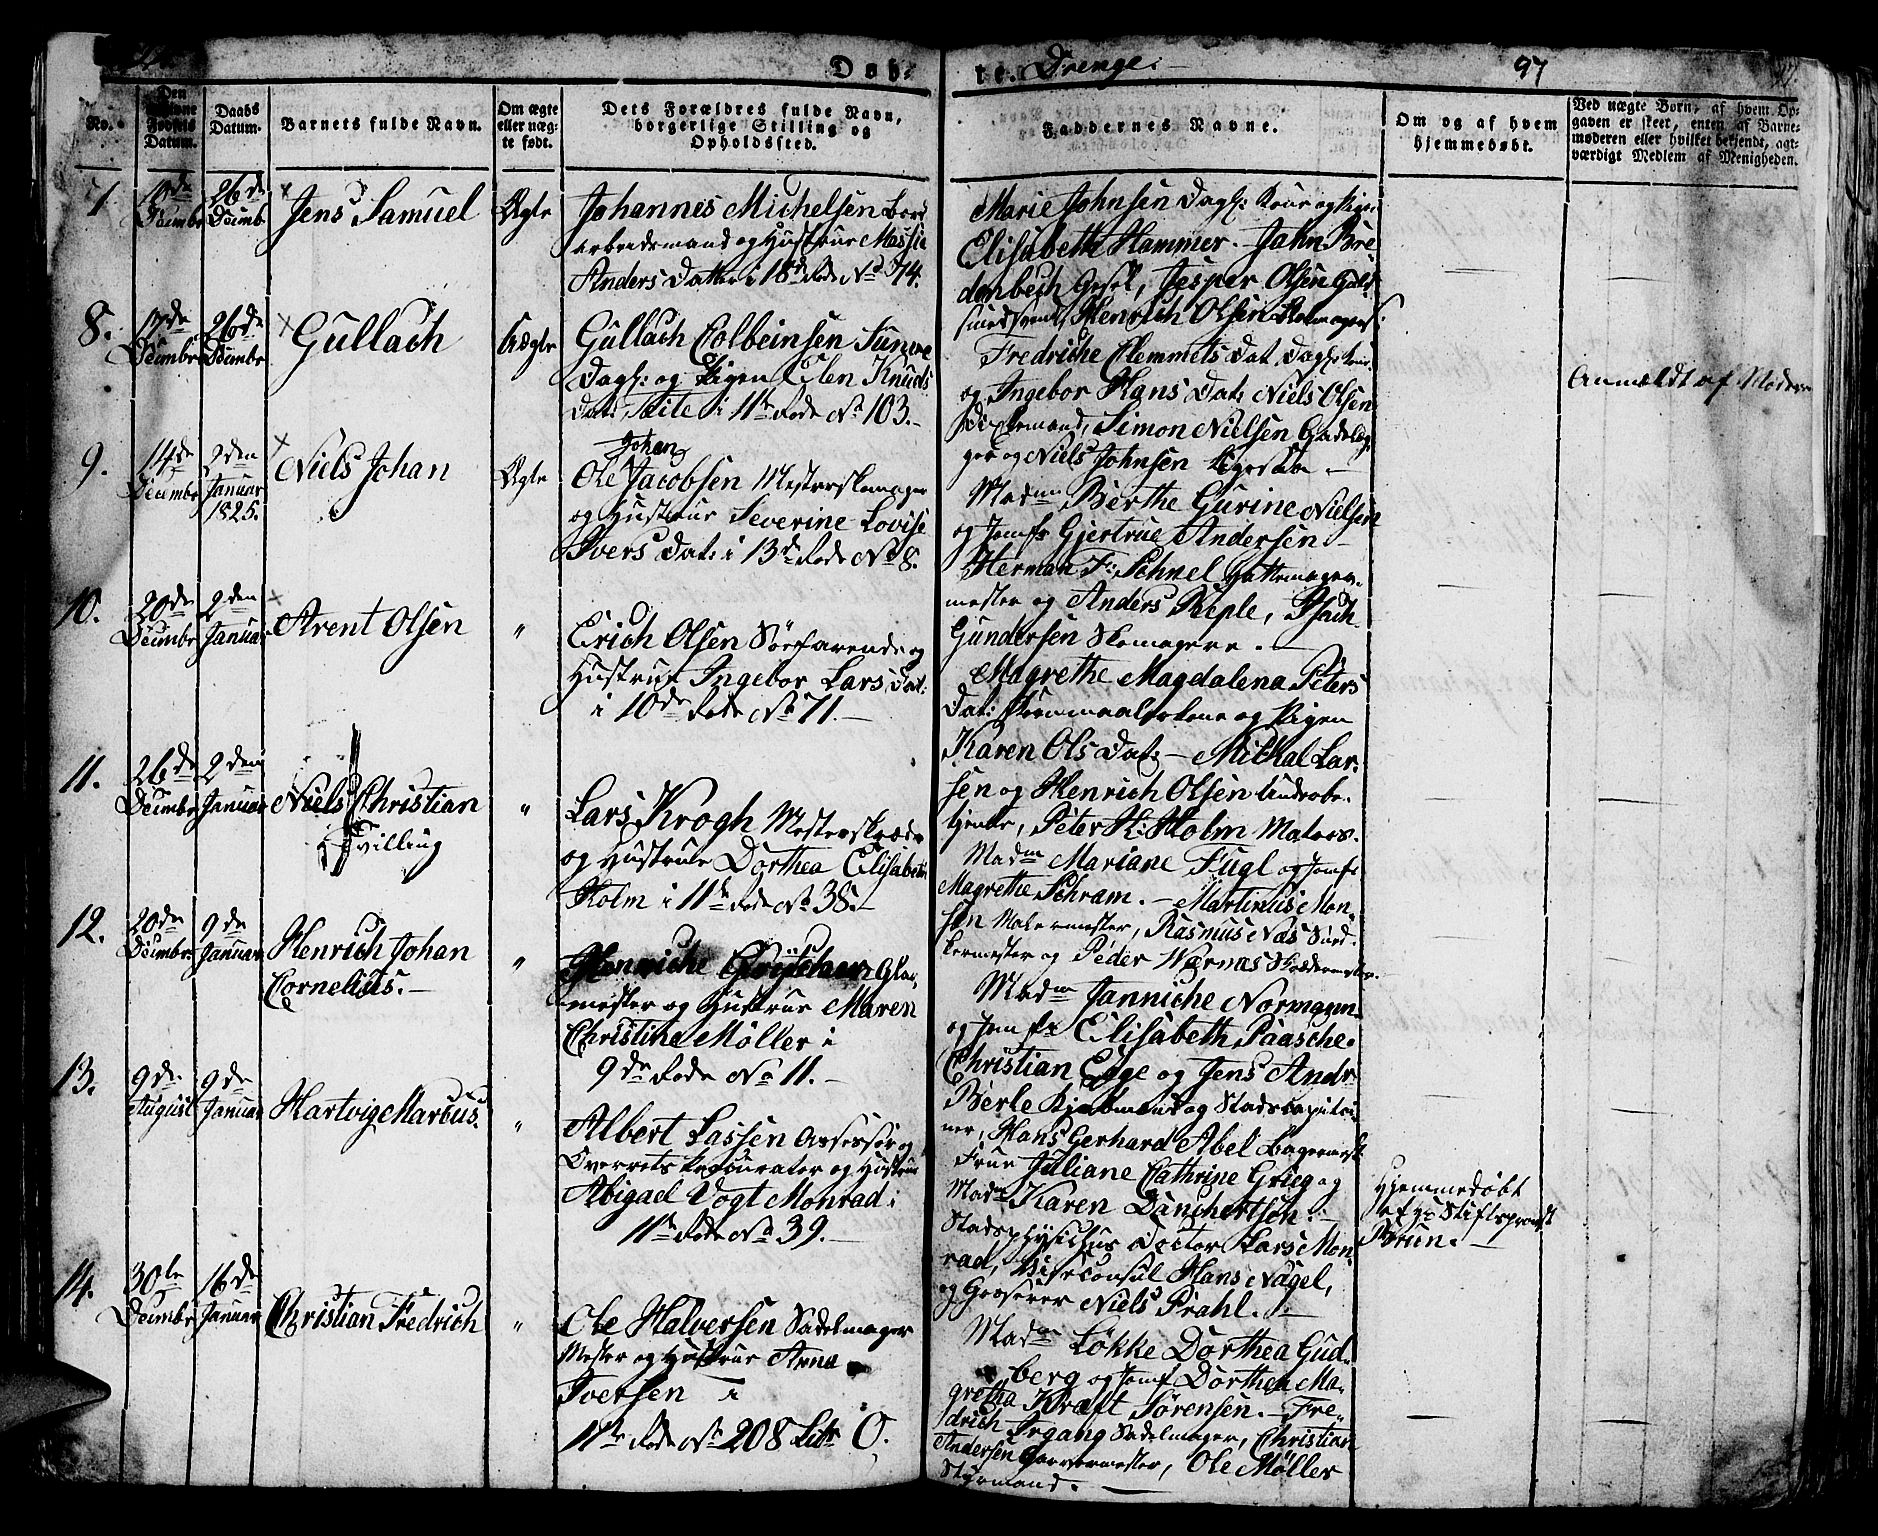 Døb-
te. Drenge.
97
No.
Den
Fødsels
Datum.
Daabs
Datum.
Barnets fulde Navn.
Om ægte
eller uæg-
te født.
Dets Forældres fulde Navn,
borgerlige Stilling og
Opholdssted.
Faddernes Navne.
Om og af hvem
hjemmedøbt.
Ved uægte Børn, af hvem Op-
gaven er skeet, enten af Barne-
moderen eller hvilket bekjendt, agt-
værdigt Medlem af Menigheden.
7.
Decembr
26de
Decemb
Jens Samuel
Ægte
Johannis Michelsen
Arbeidsmand og Hustrue
Anders Datter i 18de Rode No 74.
Marie Johnsen Dagl: Kone og Pigen
Elisabeth Hammer. John Bre
denbech Gesel, Jesper Olsen Guld
smedsvend, Henrich Olsen Skomagers.
8.
Decembr
26de
Decembr
Gullach
Uægte
Gullach Colbeinsen Sunve
Dagl: og Pigen Elen Knuds
Dat: Teite i 11te Rode No 103.
Fredriche Clemmets Dat. Dagl: Kone
og Ingebor Hans Dat: Niels Olsen
Simon Nielsen Gadelæg
ger og Niels Johnsen ligesaa
Anmeldt af Moderen
9.
14de
Decembr
2den
Januar
1825.
Niels Johan
Ægte
Johan
Ole Jacobsen Mesterskomager
og Hustrue Severine Lovise
Ivers Dat: i 13de Rode No 8.
Madme Berthe Gurine Nielsen
og Jomfr Gjertrue Andersen
Herman F: Schnel Hattemager-
mester og Anders Keple, Isach
Gundersen Skomagere.
10.
20de
Decembr
2den
Januar
Arent Olsen
"
Erich Olsen Søefarende og
Hustrue Ingebor Lars Dat:
i 10de Rode No 71.
Magrethe Magdalena Peters
Dat: og Pigen
Karen Ols Dat: Michal Lar-
sen og Henrich Olsen
Peter K: Holm Matros.
11.
26de
Decembr
2den
Januar
Niels Christian
Tvilling
"
Lars Krogh Mesterskræder
og Hustrue Dorthea Elisabeth
Holm i 11te Rode No 38.
Madme Mariane Fugl og Jomfr
Magrethe Schram. Martinus Mon-
sen Malermester, Rasmus Næs
kermester og Peder Wærnæs
12.
20de
Decembr
9de
Januar
Henrich Johan
Cornelius.
"
Henriche Glar-
mester og Hustrue Maren
Christina Møller i
9de Rode No 11.
Madme Janniche Normann
og Jomfr Elisabeth Paasche.
Christian Egge og Jens Andr
Berle Kjøbmænd og Stadscapitai-
ner, Hans Gerhard Abel Bagermest
13.
9de
August
9de
Januar
Hartvig Marcus.
"
Albert Lassen Assessor og
Overretsprocurator og Hustrue
Abigael Vogt Monrad i
11te Rode No 39.
Frue Juliane Cathrine Grieg og
Madme Karen Danchertsen.
Stadsphysicus Doctor Lars Mon
rad, Viceconsul Hans Nagel,
og Grosserer Niels Prahl.
Hjemmedøbt
af Hr Stiftsprovst
Bruun.
14.
30te
Decembr
16de
Januar
Christian Fredrich
"
Ole Halversen Sadelmager
Mester og Hustrue Anna
Iversen i
11te Rode No 208 Litr O.
Madme Løkke Dorthea Gud-
berg og Jomf Dorthea Ma-
gretha Kraft Sørensen. Fre-
drich Irgang Sadelmager, Christian
Andersen Garvermester, Ole Møller
Styrmand.